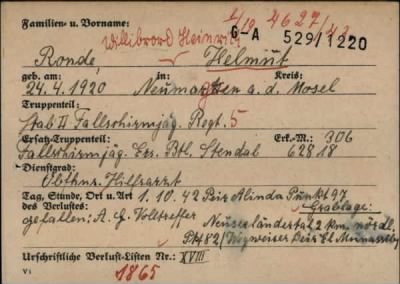 Familien- u. Vorname: 1/10 4627/42
Willibrord Heinrich G-A 529/1220
Ronde, Helmut
geb. am: in: Kreis:
24.4.1920 Neumagen a.d. Mosel
Truppenteil:
Stab II Fallschirmjäg. Regt. 5
Ersatz-Truppenteil: Erk.-M.: 306
Fallschirmjäg. Ers. Btl. Stendal 62818
Dienstgrad:
Hilfsarzt
Tag, Stunde, Ort u. Art 1.10.42 Deir Alinda Punkt 97
des Verlustes: Grablage:
gefallen: A.G. Volltreffer Neuseeländertal 2 km nördl.
Pkt 82/Wegweiser Deir El
Urschriftliche Verlust-Listen Nr.: XVIII
V1 1865